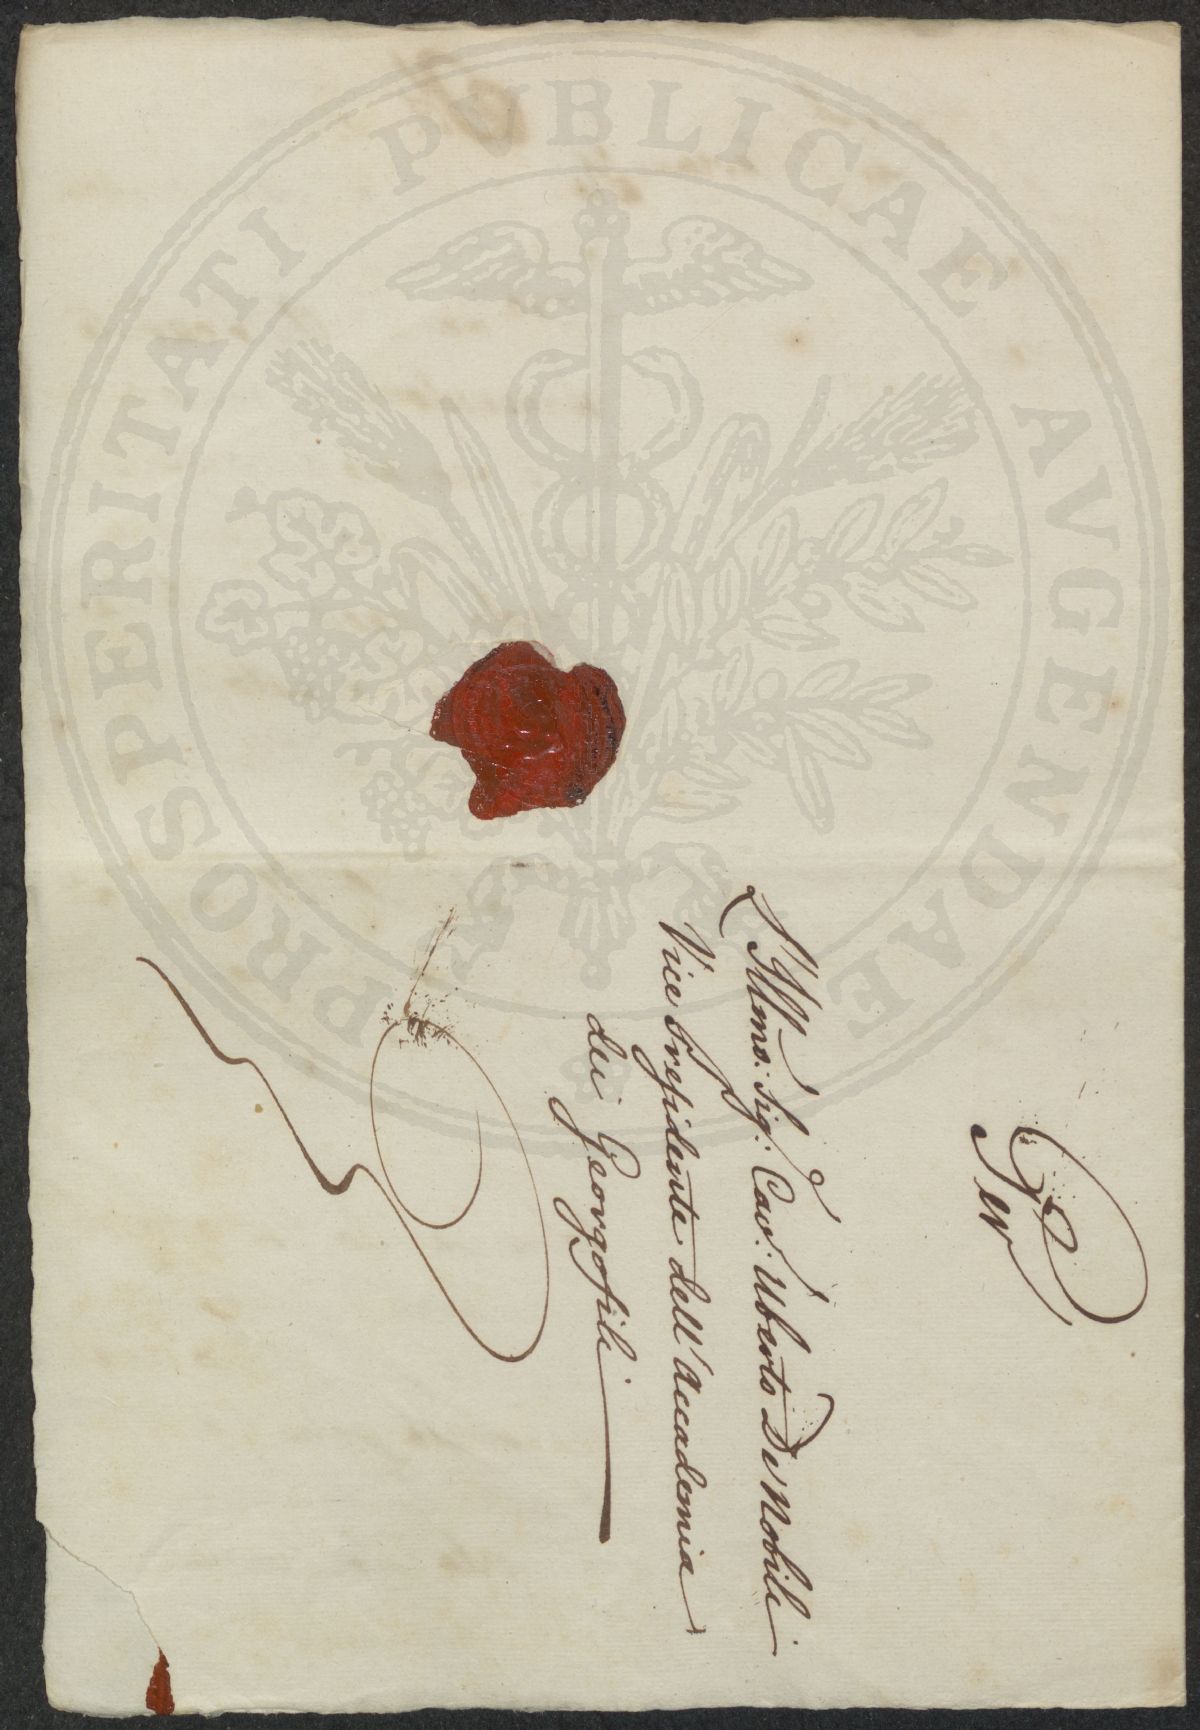 Per
L'Illmo: Sig: Cav: Uberto De Nobili
Vice Presidente dell'Accademia
dei Georgofili
PROSPERITATI PVBLICAE AVGENDAE